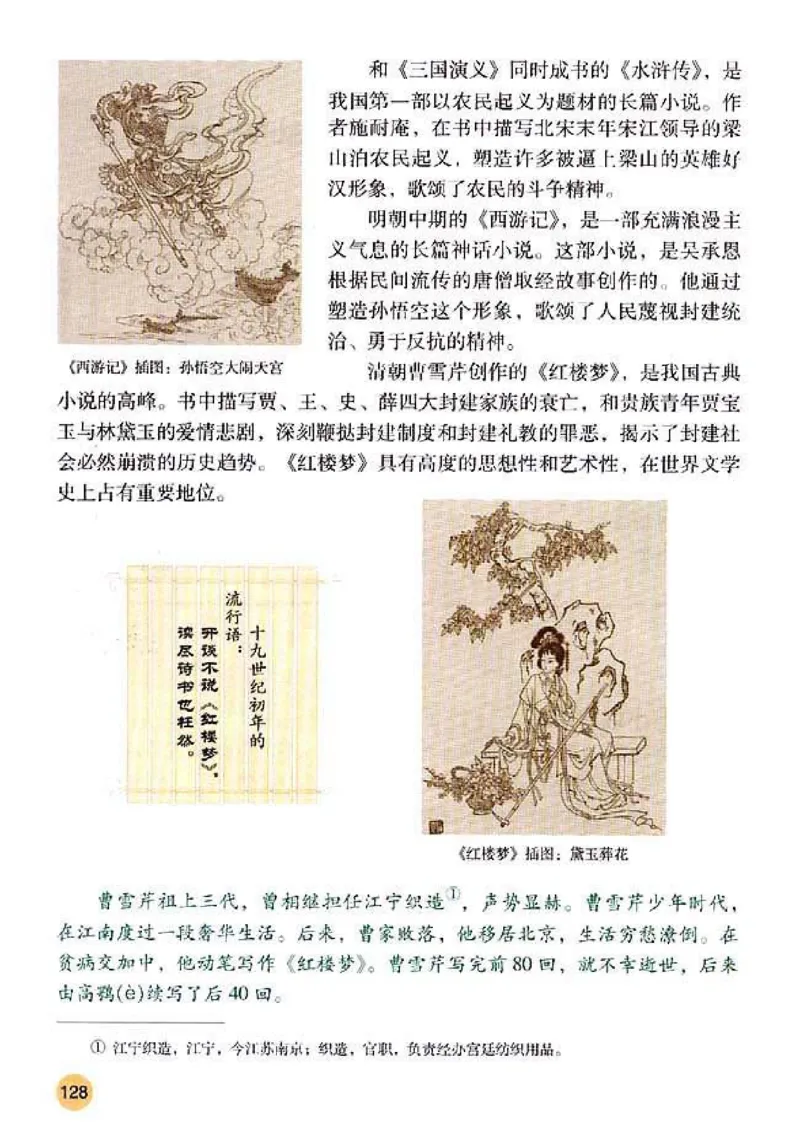 和《三国演义》同时成书的《水浒传》，是
我国第一部以农民起义为题材的长篇小说。作
者施耐庵，在书中描写北宋末年宋江领导的梁
山泊农民起义，塑造许多被逼上梁山的英雄好
汉形象，歌颂了农民的斗争精神。
明朝中期的《西游记》，是一部充满浪漫主
义气息的长篇神话小说。这部小说，是吴承恩
根据民间流传的唐僧取经故事创作的。他通过
塑造孙悟空这个形象，歌颂了人民蔑视封建统
治、勇于反抗的精神。
《西游记》插图：孙悟空大闹天宫
清朝曹雪芹创作的《红楼梦》，是我国古典
小说的高峰。书中描写贾、王、史、薛四大封建家族的衰亡，和贵族青年贾宝
玉与林黛玉的爱情悲剧，深刻鞭挞封建制度和封建礼教的罪恶，揭示了封建社
会必然崩溃的历史趋势。《红楼梦》具有高度的思想性和艺术性，在世界文学
史上占有重要地位。
十九世纪初年的
流行语：
开谈不说《红楼梦》，
读尽诗书也枉然。
《红楼梦》插图：黛玉葬花
曹雪芹祖上三代，曾相继担任江宁织造①，声势显赫。曹雪芹少年时代，
在江南度过一段奢华生活。后来，曹家败落，他移居北京，生活穷愁潦倒。在
贫病交加中，他动笔写作《红楼梦》。曹雪芹写完前 80 回，就不幸逝世，后来
由高鹗(è)续写了后 40 回。
① 江宁织造，江宁，今江苏南京；织造，官职，负责经办宫廷纺织用品。
128